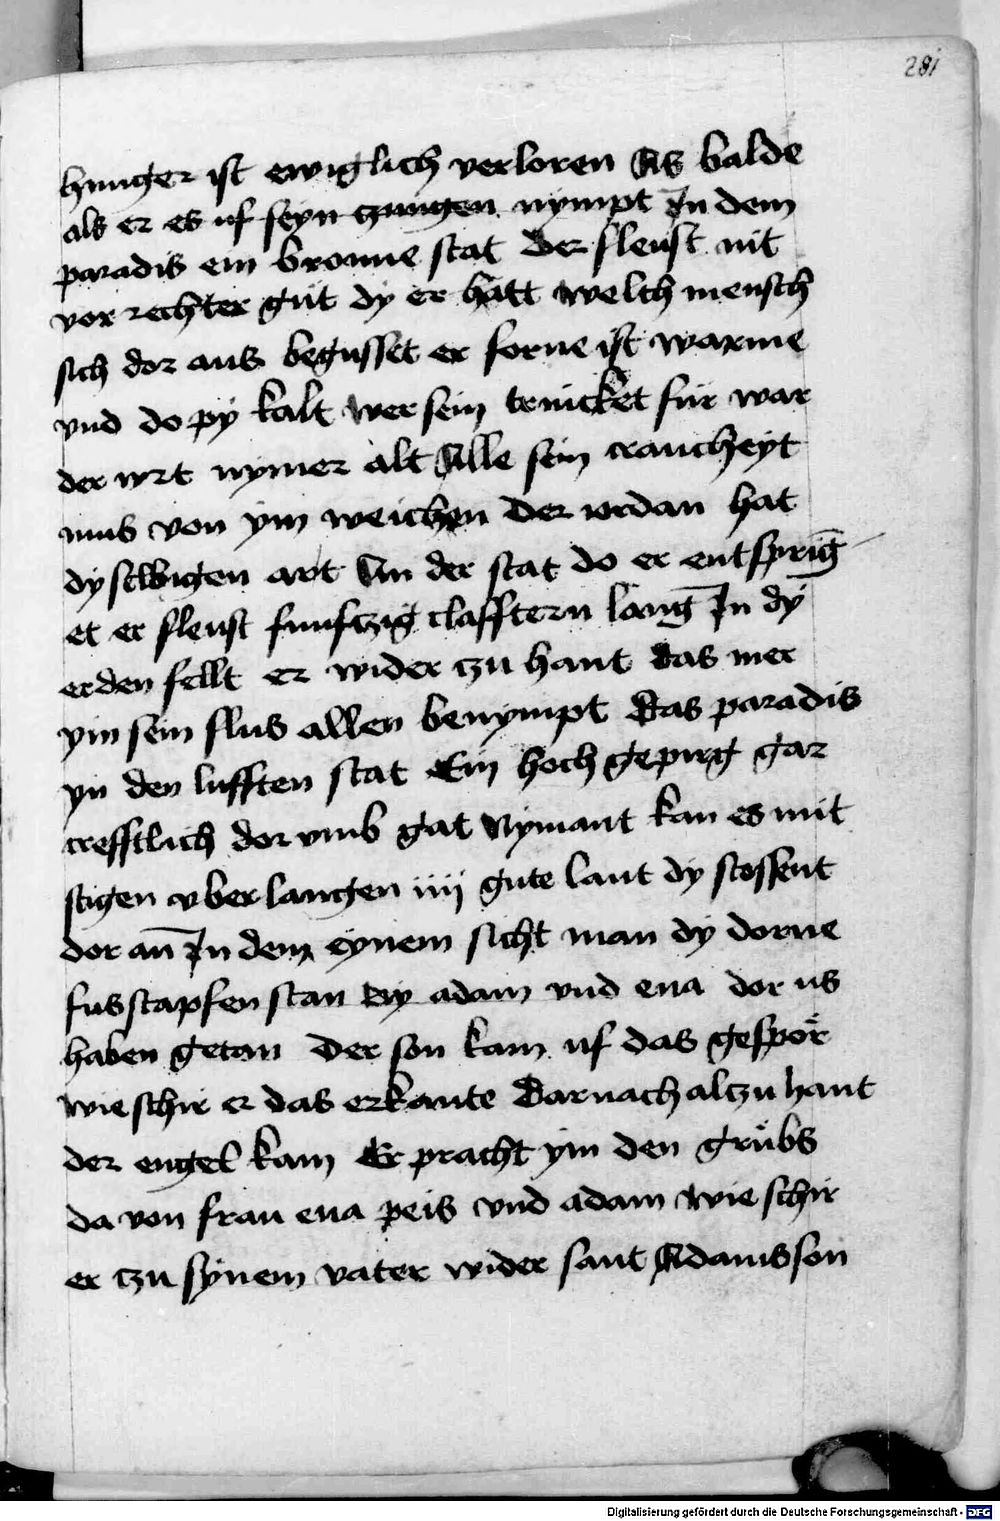 281
hunger ist ewiglich verloren As balde
als er es uf seyn czungen nympt In dem
paradis ein bronne stat Der fleust nit
vor rechter güt dy er hatt Welch mensch
sich dor aus begusset er forne ist warme
vnd do py kalt Wer sein trincket für war
der wrt nymer alt Alle sein cranckeyt
mus von ym weichen Der iordan hat
dy selbigen art An der stat do er entspring
et er fleust funfczig clafftern lang In dy
erden fellt er wider czu hant Das mer
ym sein flus allen benympt Das paradis
yn den lufften stat Ein hoch gepirg gar
trefftlich dor vmb gat Nymant kan es mit
stigen vber langen iiij gute lant dy stossent
dor an In dem eynem sicht man dy dorne
fusstapfen stan Dy adam vnd eua dor us
haben getan Der son kam uf das gespör
wie schir er das erkante Darnach alczu hant
der engel kam Er pracht ym den grübs
da von frau eua peis vnd adam Wie schir
er czu synem vater wider sant Adams son
Digitalisierung gefördert durch die Deutsche Forschungsgemeinschaft - DFG